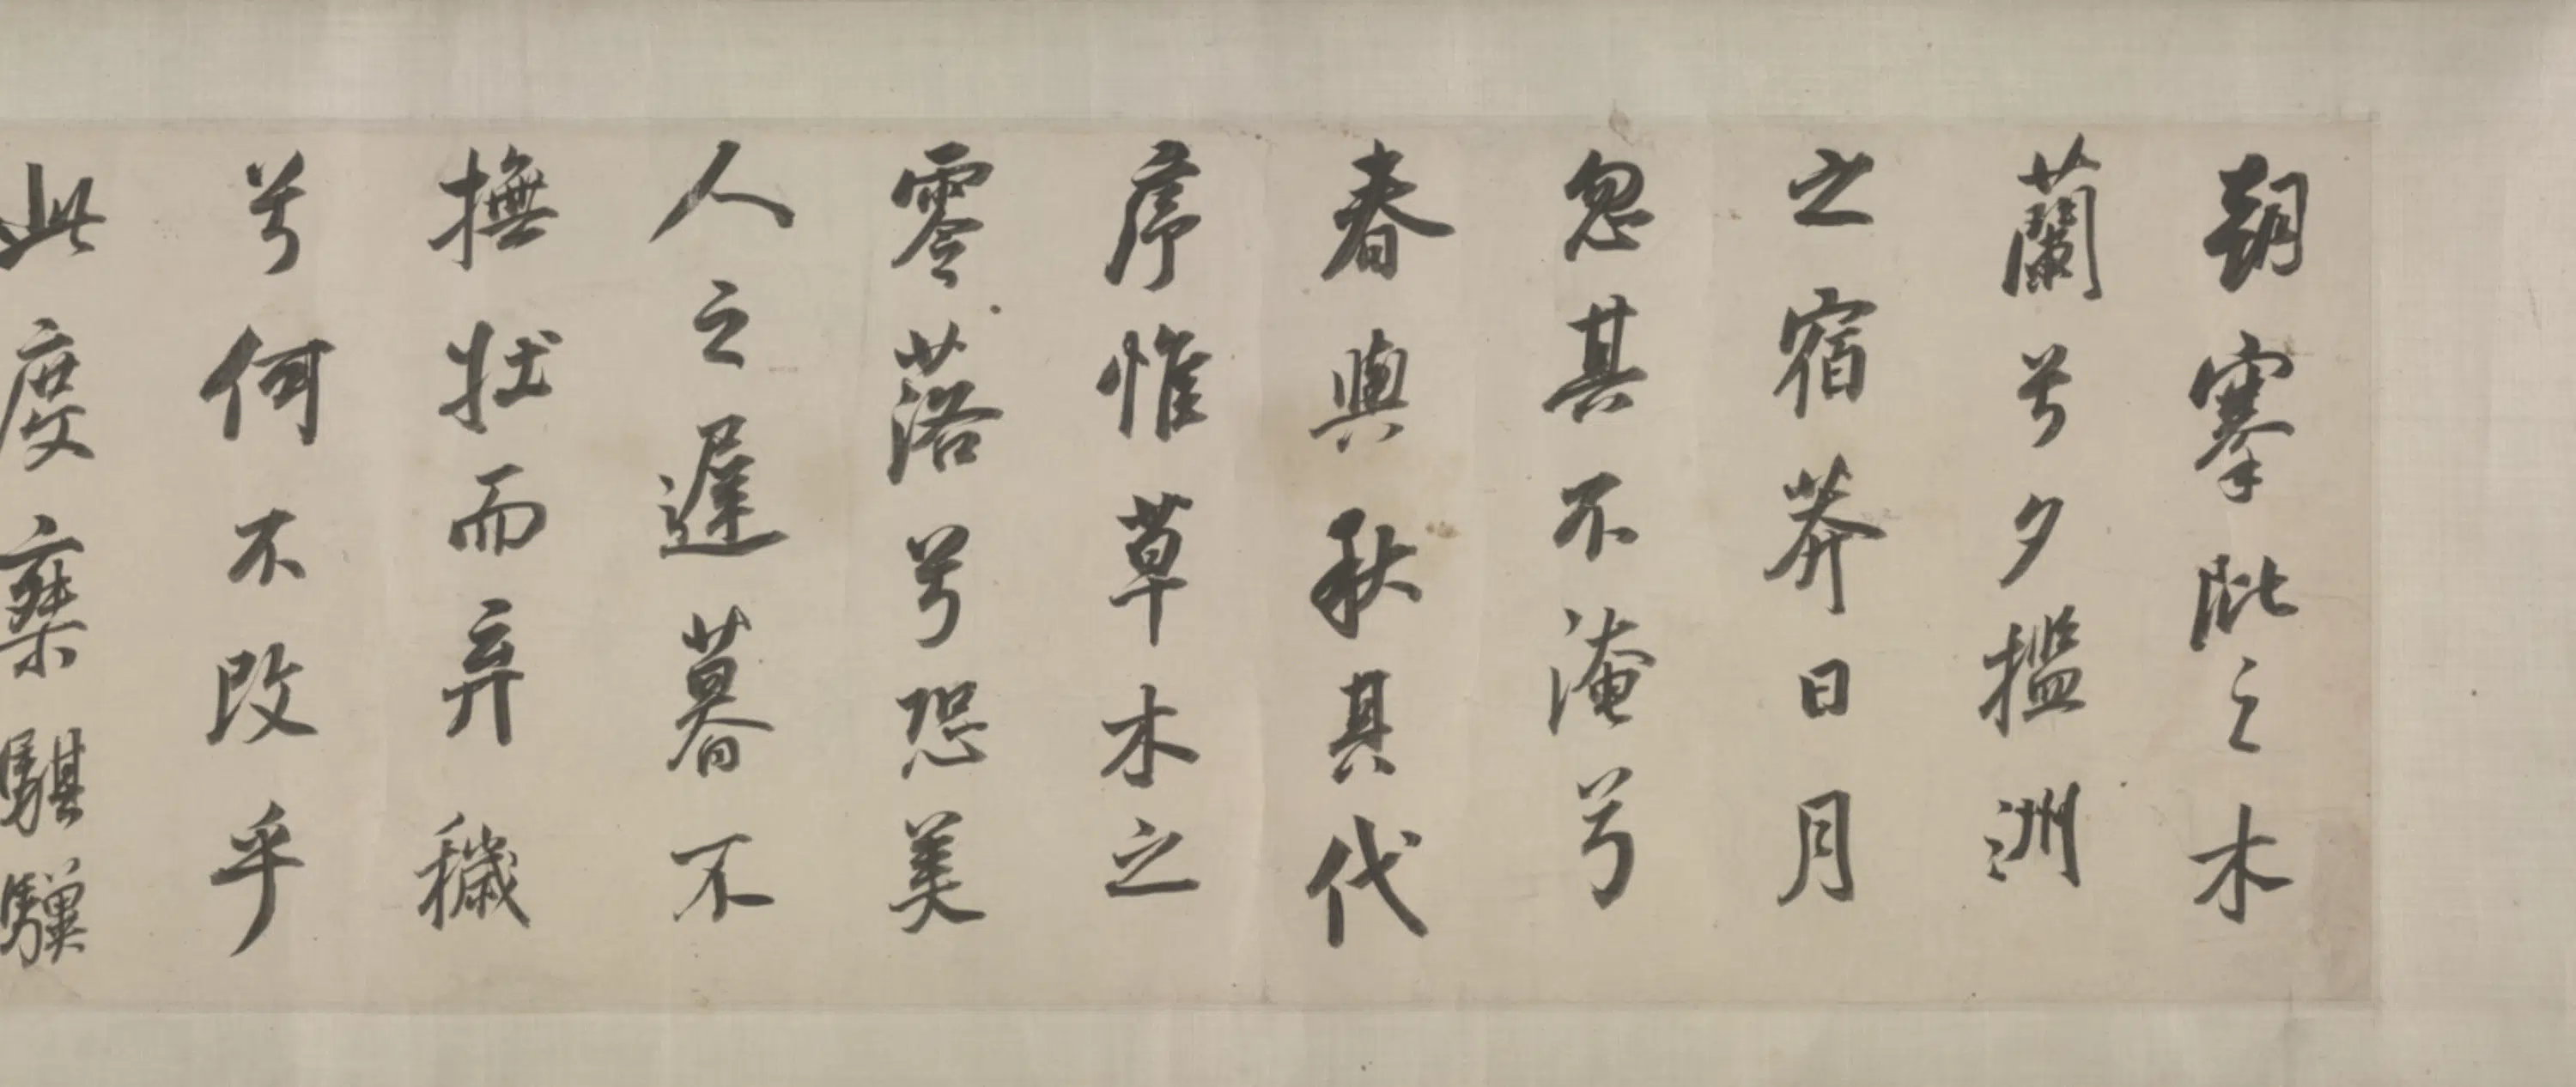 朝搴阰之木
蘭兮夕擥洲
之宿莽日月
忽其不淹兮
春與秋其代
序惟草木之
零落兮恐美
人之遲暮不
撫壯而弃穢
兮何不改乎
此度椉騏驥